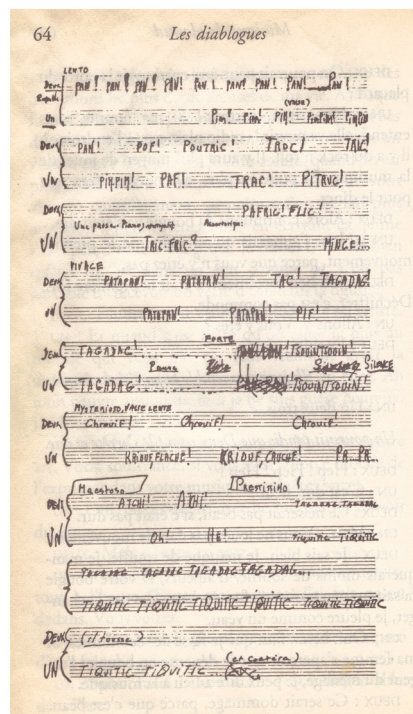 64 Les diablogues
LENTO
DEUX PAN! PAN! PAN! PAN! PAN! PAN! PAN! PAN! PAN!
UN Pim! Pim! PIM! PimPam! PimPam
DEUX PAN! POF! POUTRIC! TROC! TRIC!
UN PIMPIM! PAF! TRAC! PITRUC!
DEUX PAFRIC! FLIC!
Une pause.
UN TRIC-FRIC? MINCE!
VIVACE
DEUX PATAPAN! PATAPAN! TAC! TAGADAG!
UN PATAPAN! PATAPAN! PIF!
FORTE
DEUX TAGADAC! TSOUINTSOUIN!
Pause SILENCE
UN TAGADAG! TSOUINTSOUIN!
MYSTERIOSO, VALSE LENTE
DEUX Chrouif! Chrouif! Chrouif!
UN KRIOUFLACHE! KRIOUF, CRUCHE! PA..PA..
Maestoso Prestissimo!
DEUX ATCHI! ATCHI! TAGADAG TAGADAG
UN Oh! HÉ! TIQUITIC TIQUITIC
TAGADAG TAGADAG TAGADAG TAGADAG...
TIQUITIC TIQUITIC TIQUITIC TIQUITIC TIQUITIC TIQUITIC
DEUX (il tousse)
UN TIQUITIC TIQUITIC... (et coetéra)